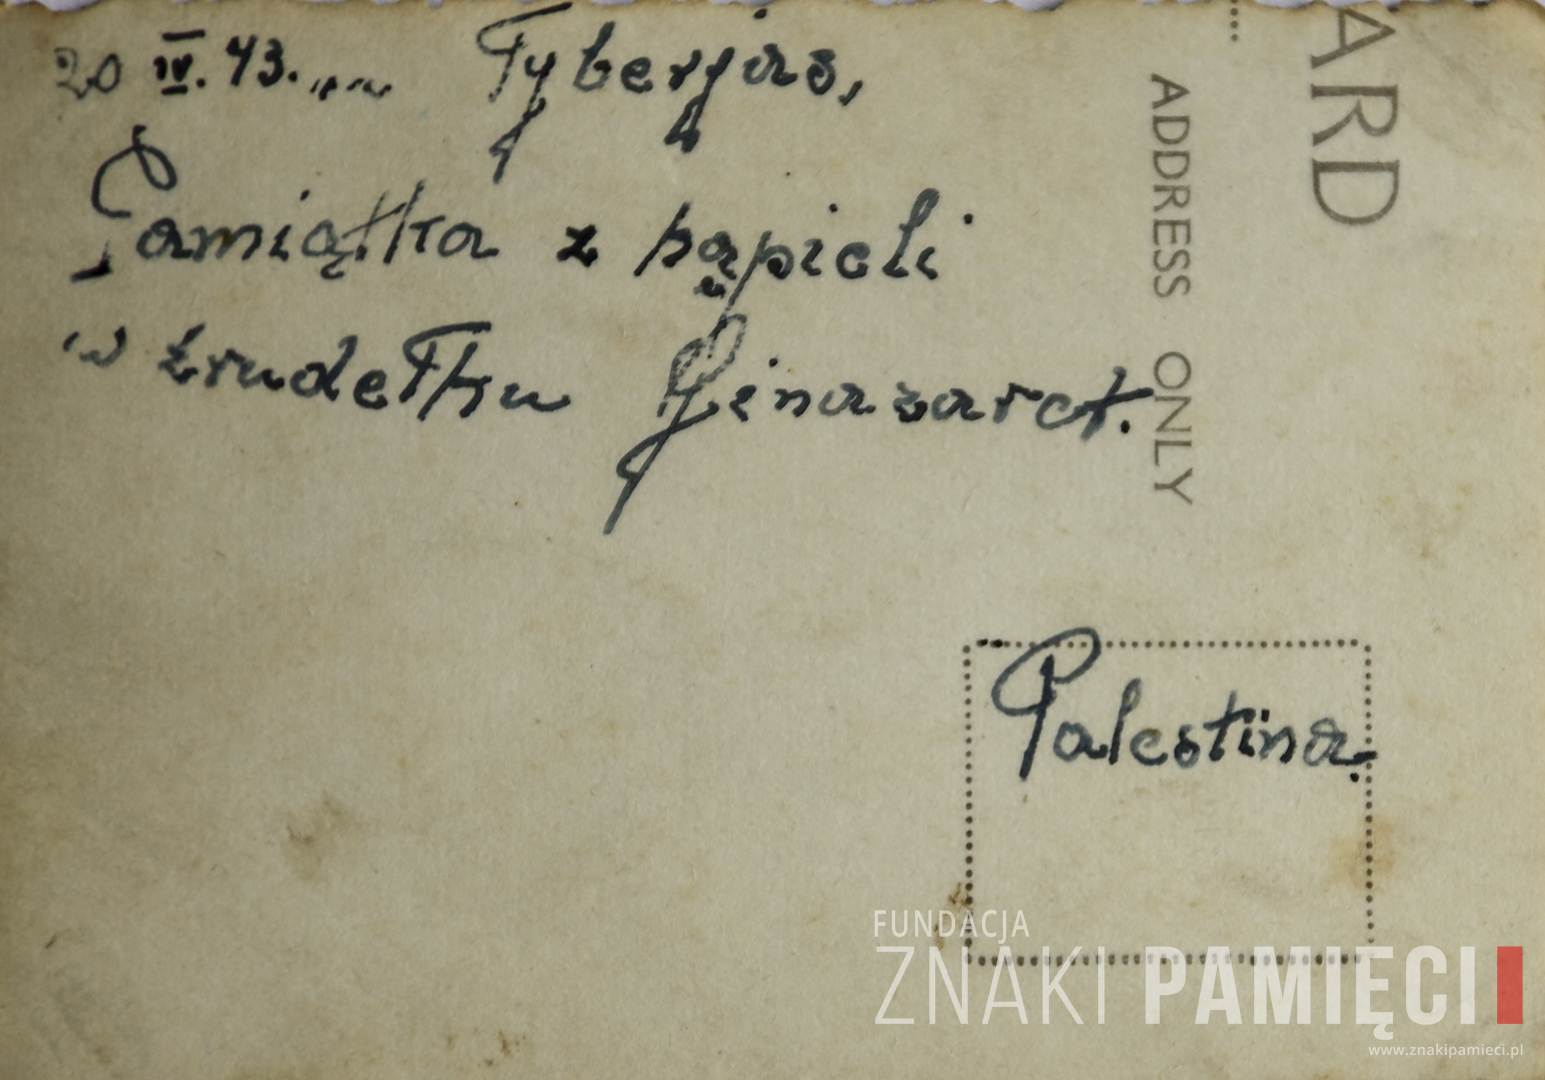 20 IV. 43. Tyberjas,
Pamiątka z kąpieli
w źrudełku Genazaret.
Palestina.
ARD
ADDRESS ONLY
FUNDACJA
ZNAKI PAMIĘCI
www.znakipamieci.pl